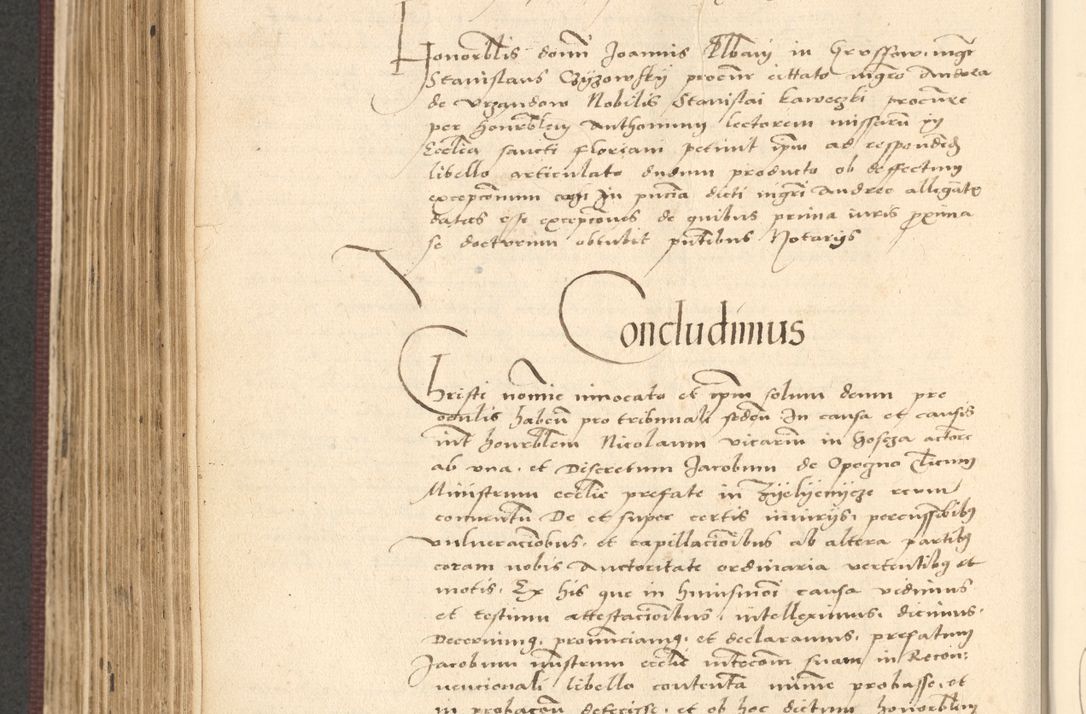 Honorblis domi Joannis Plbani in Grossow, mgr
Stanislaus Czÿzowskÿ procur cittato mgro Andrea
de Vrzandow Nobilis Stanislai Kaweczki procure
per Honorblem Anthonium lectorem missaru in
Ecclia sancti Floriani petiuit ipm ad respondend
libello articulato dudum producto ob deffectum
excepconum In pncia dicti mgri Andree allegate
esse excepcones de quibus prima iuris proxima
se docturum obtulit pntibus Notarijs
Concludimus
Christi nomie inuocato et ipm solum deum pre
oculis haben pro tribunali seden In causa et causis
int honorblem Nicolaum vicariu in Goscza actore
ab vna, et Discretum Jacobum de Opogno
Ministrum ecclie prefate in reum
conuentu De et super certis iniurijs, percussionibus
vulneracionibus, et capillacionibus ab altera partibus
coram nobis Auctoritate ordinaria vertentibus et
motis. Ex his que in huiusmoi causa vidimus
et testium attestacionibus, intelleximus, dicimus,
Decernimus, pronunciamus, et declaramus, prefatum
Jacobum mnstrum ecclie intecom suam in Recon:
uencionali libello contenta minime probasse, et
in probacon defecisse, et ob hoc dictum honorblem